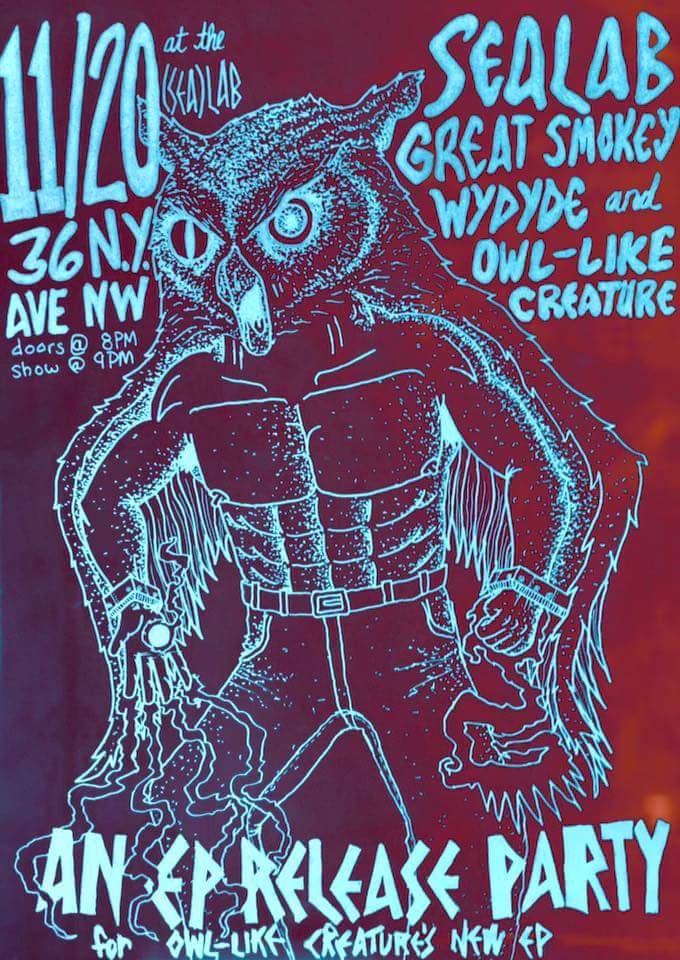 11/20
at the
(SEA)LAB
36 N.Y.
AVE NW
doors @ 8PM
show @ 9PM
SEALAB
GREAT SMOKEY
WYDYDE and
OWL-LIKE
CREATURE
AN EP RELEASE PARTY
for OWL-LIKE CREATURE'S NEW EP